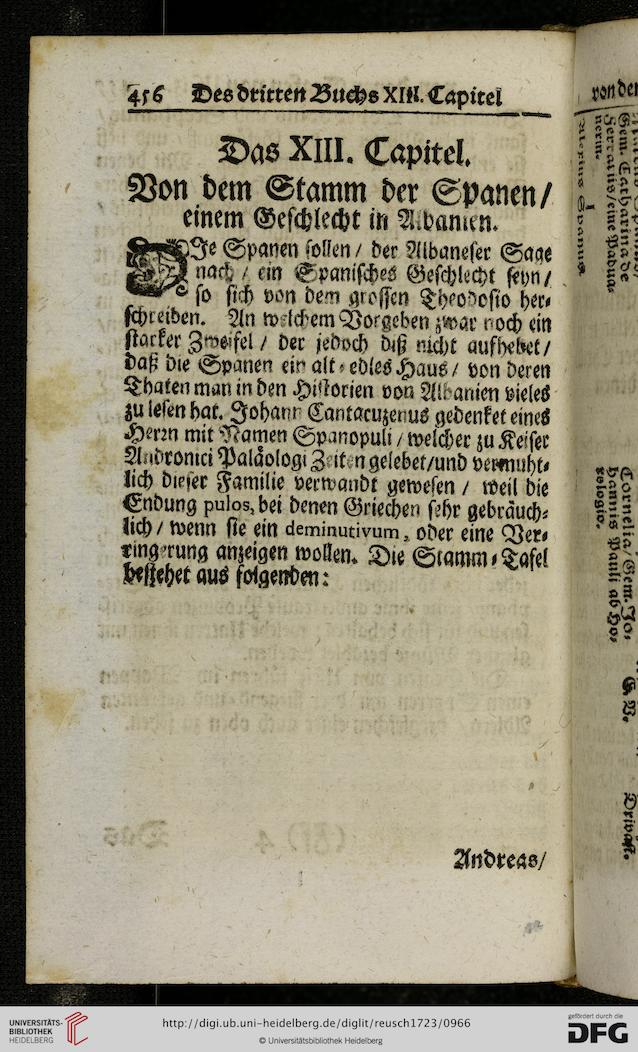 456 Des dritten Buchs XIII. Capitel
Das XIII. Capitel.
Von dem Stamm der Spanen/
einem Geschlecht in Albanien.
DJe Spanen sollen / der Albaneser Sage
nach / ein Spanisches Geschlecht seyn /
so sich von dem grossen Theodosio her⸗
schreiben. An welchem Vorgeben zwar noch ein
starker Zweifel / der jedoch diß nicht aufhebet /
daß die Spanen ein alt⸗edles Haus / von deren
Thaten man in den Historien von Albanien vieles
zu lesen hat. Johann Cantacuzenus gedenket eines
Herrn mit Namen Spanopuli / welcher zu Keiser
Andronici Paläologi Zeiten gelebet / und vermuht⸗
lich dieser Familie verwandt gewesen / weil die
Endung pulos, bei denen Griechen sehr gebräuch⸗
lich / wenn sie ein deminutivum, oder eine Ver⸗
ringerung anzeigen wollen. Die Stamm⸗Tafel
bestehet aus folgenden:
Andreas/
von der
Gem. Catharina de
/ eine Padua⸗
nerin.
Alexius Spanus.
Cornelia / Gem. Jo⸗
hannis Pauli ab Ho⸗
rologio.
UNIVERSITÄTS-
BIBLIOTHEK
HEIDELBERG
http://digi.ub.uni-heidelberg.de/diglit/reusch1723/0966
© Universitätsbibliothek Heidelberg
gefördert durch die
DFG